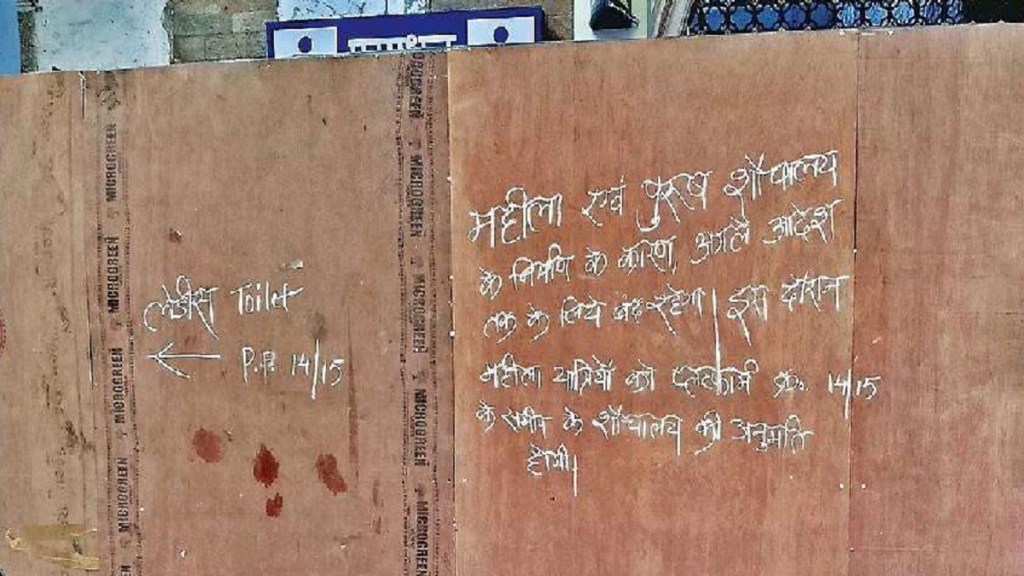 MICROGREEN MICROGREEN MICROGREEN MICROGREEN
लेडीस Toilet
← P.P. 14/15
MICROGREEN MICROGREEN MICROGREEN MICROGREEN
महीला एवं पुरुष शौचालय
के निर्माण के कारण अगले आदेश
तक के लिये बंद रहेगा। इस दौरान
महीला यात्रियों को प्लेटफार्म क्र. 14/15
के समीप के शौचालय की अनुमति
होगी।